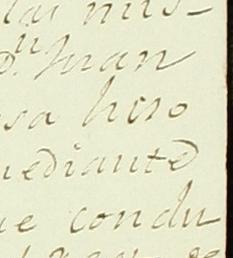 mis-
D.n Juan
sa hiso
mediante
ue condu